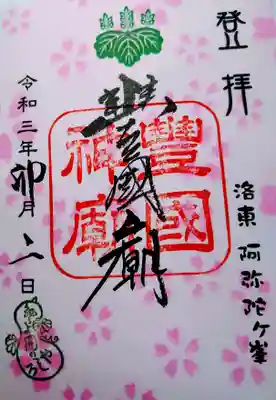 登拝
洛東 阿弥陀ケ峯
豐國廟
豐國
神廟
令和三年卯月二日